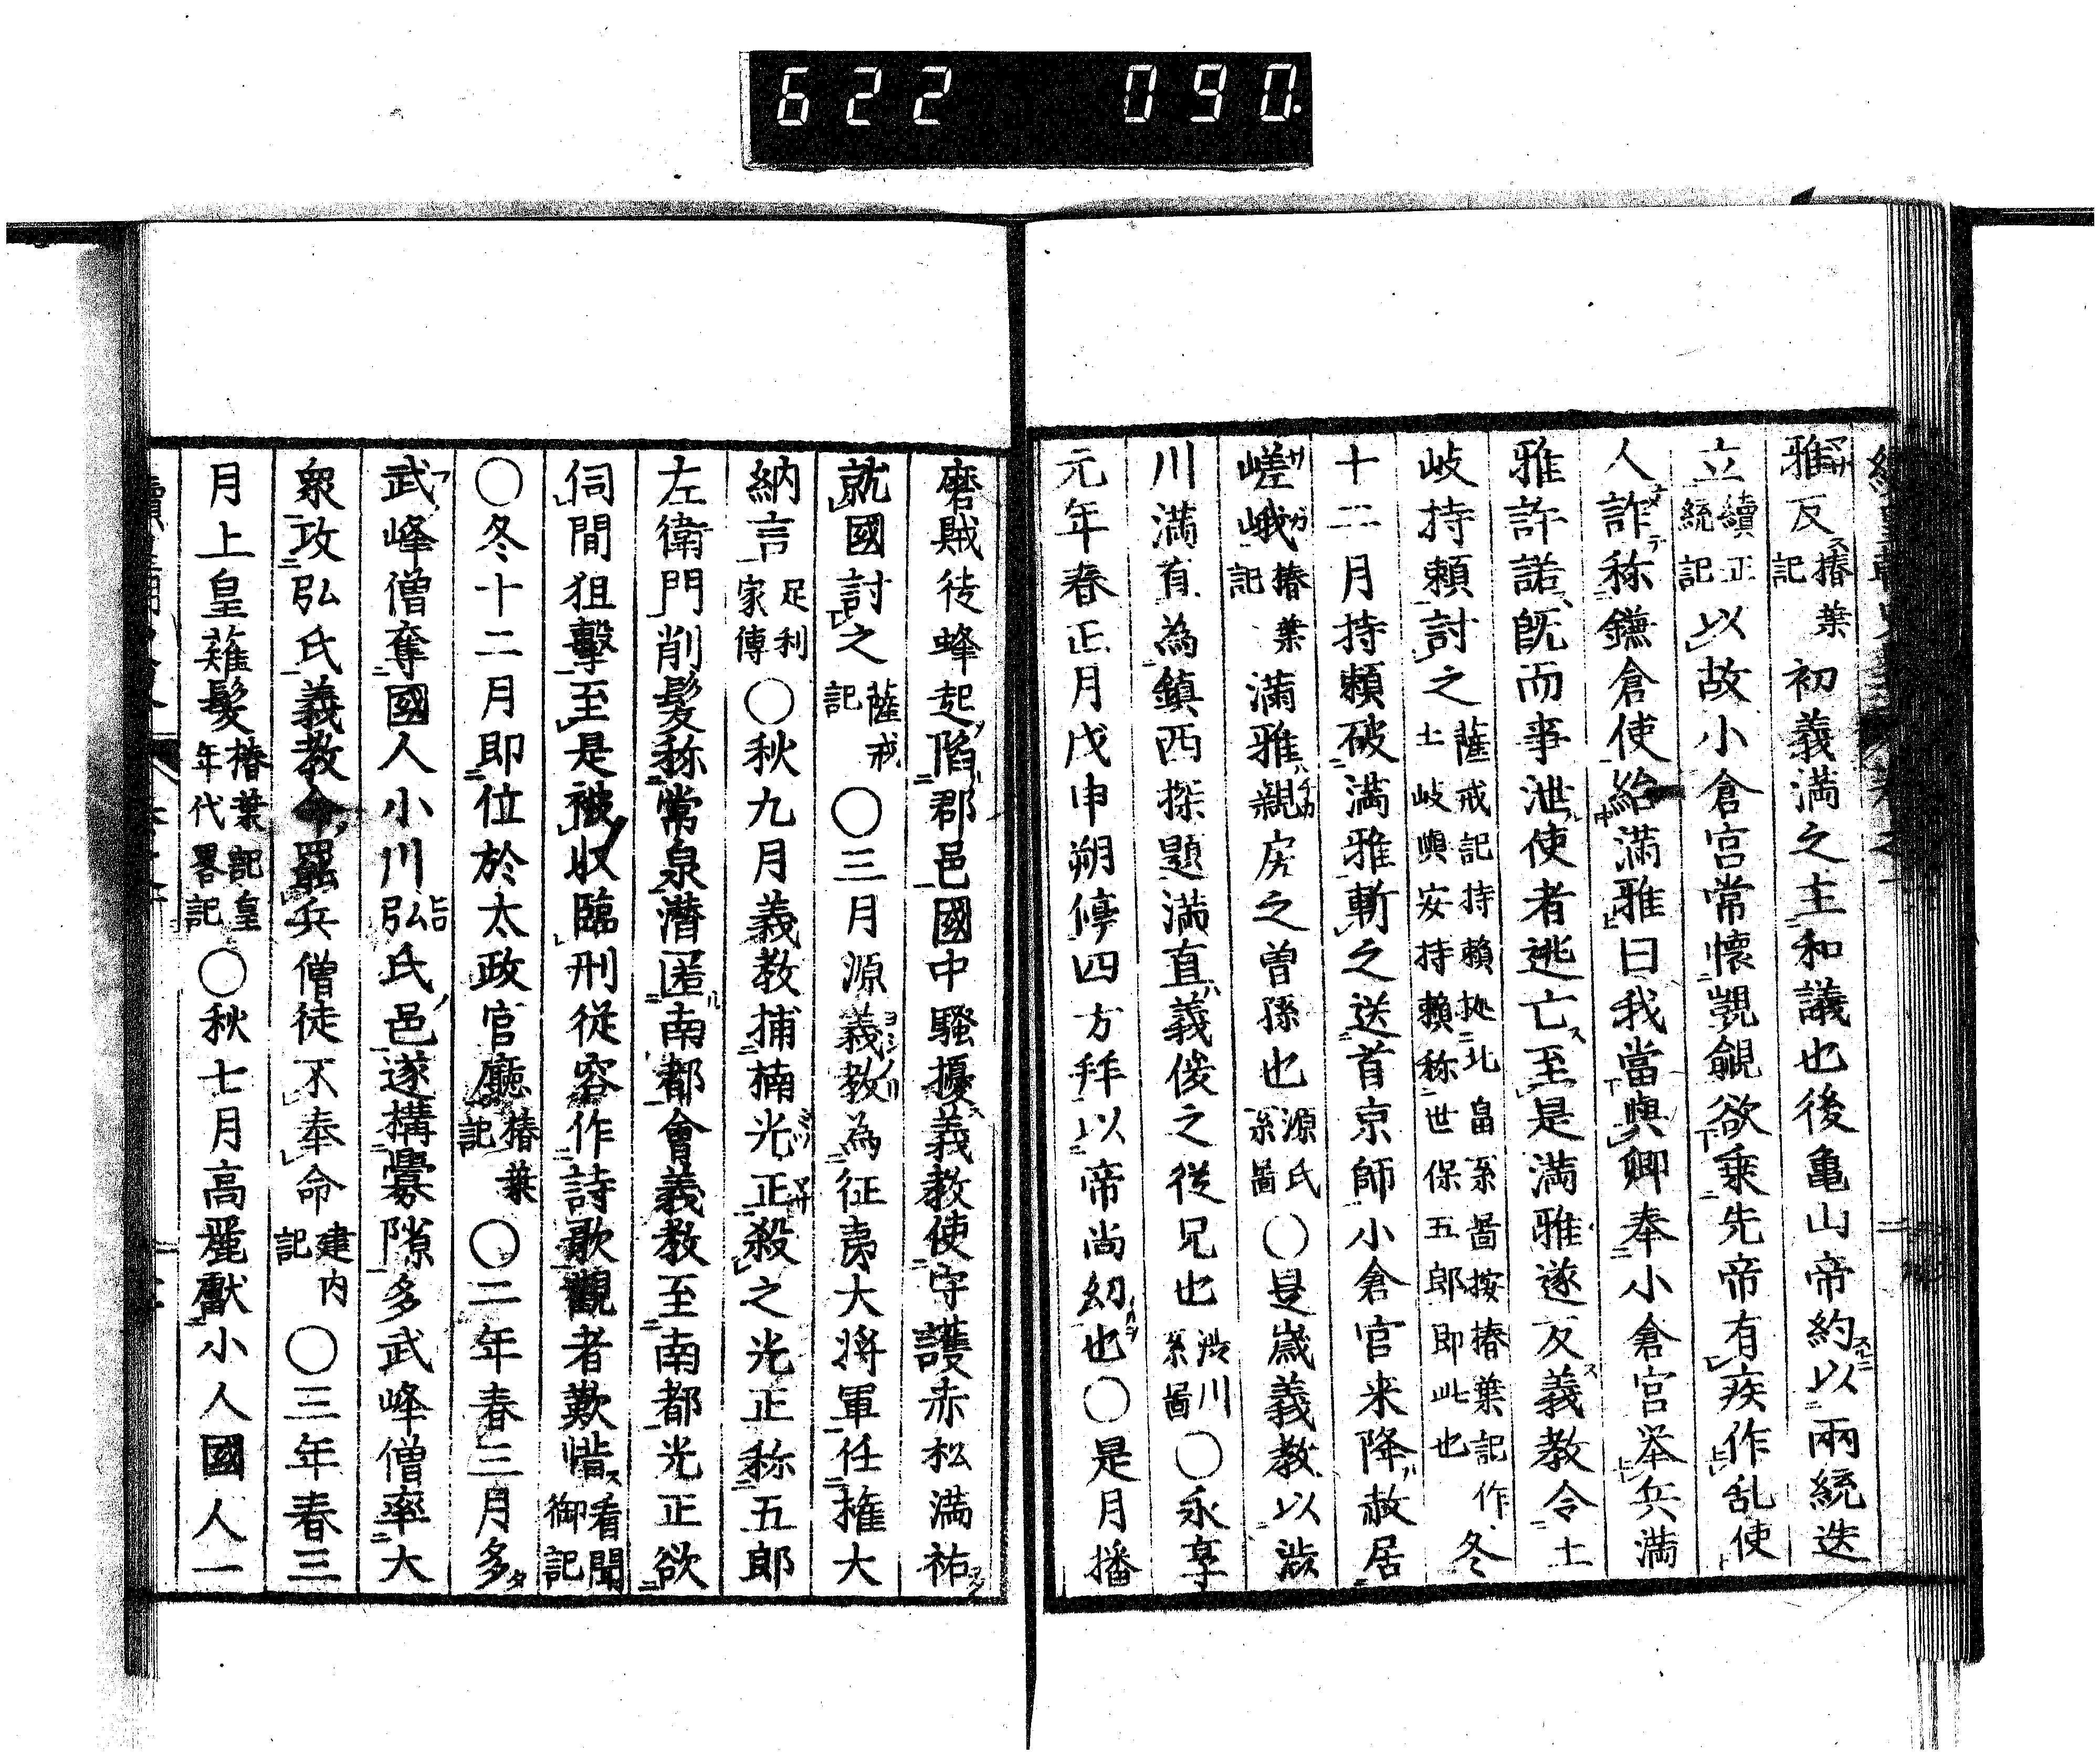 622 090.
雅反椿葉記初義満之主和議也後亀山帝約以兩統迭
立續正統記以故小倉宮常懷覬覦欲乗先帝有疾作乱使
人詐称鎌倉使紿満雅曰我當與卿奉小倉宮挙兵満
雅許諾既而事泄使者逃亡至是満雅遂反義教令土
岐持頼討之薩戒記持頼拠北畠系啚按椿葉記作土岐與安持頼称世保五郎即此也冬
十二月持頼破満雅斬之送首京師小倉宮来降赦居
嵯峨椿葉記満雅親房之曽孫也源氏系啚〇是歳義教以渋
川満直為鎮西探題満直義俊之従兄也渋川系啚〇永享
元年春正月戊申朔停四方拜以帝尚幼也〇是月播
磨賊徒蜂起陷郡邑國中騷擾義教使守護赤松満祐
就國討之薩戒記〇三月源義教為征夷大将軍任權大
納言足利家傳〇秋九月義教捕楠光正殺之光正称五郎
左衛門削髪称常泉潜匿南都會義教至南都光正欲
伺間狙擊至是被收臨刑従容作詩歌觀者歎惜看聞御記
〇冬十二月即位於太政官廳椿葉記〇二年春三月多
武峰僧奪國人小川弘氏邑遂構釁隙多武峰僧率大
衆攻弘氏義教令罷兵僧徒不奉命建内記〇三年春三
月上皇薙髪椿葉記皇年代畧記〇秋七月高麗獻小人國人一